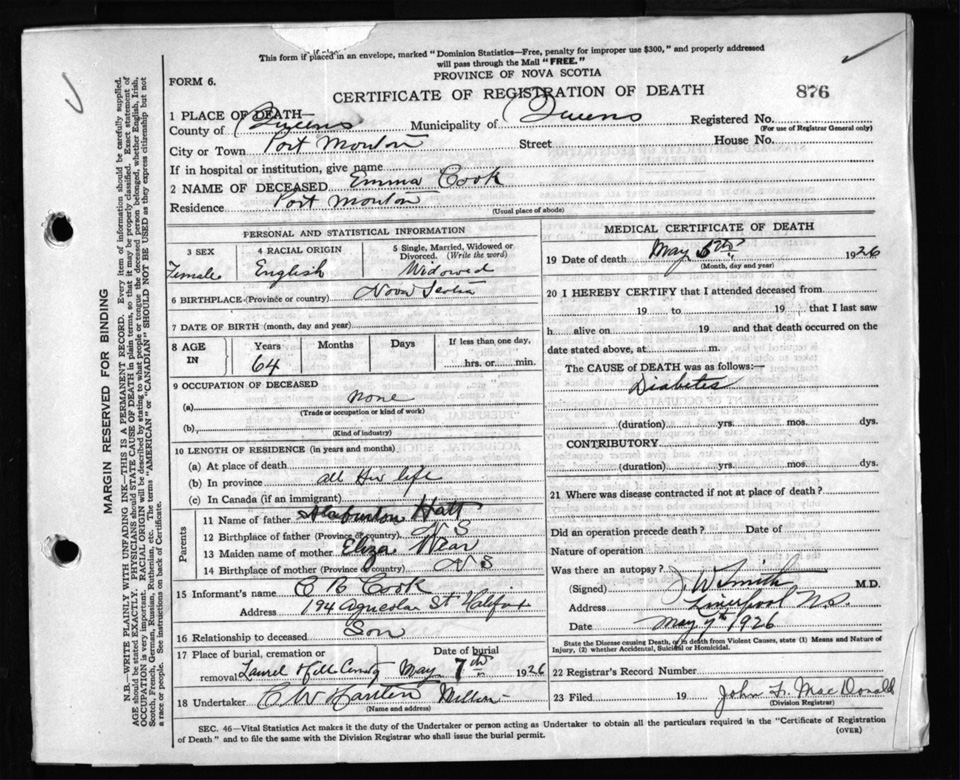 This form if placed in an envelope, marked "Dominion Statistics—Free, penalty for improper use $300," and properly addressed
will pass through the Mail "FREE."
PROVINCE OF NOVA SCOTIA
FORM 6.
CERTIFICATE OF REGISTRATION OF DEATH
876
1 PLACE OF DEATH—
County of Queens Municipality of Queens Registered No.
(For use of Registrar General only)
City or Town Port Mouton Street House No.
If in hospital or institution, give name
2 NAME OF DECEASED Emma Cook
Residence Port Mouton
(Usual place of abode)
PERSONAL AND STATISTICAL INFORMATION
3 SEX 4 RACIAL ORIGIN 5 Single, Married, Widowed or Divorced. (Write the word)
Female English Widowed
6 BIRTHPLACE (Province or country) Nova Scotia
7 DATE OF BIRTH (month, day and year)
8 AGE IN Years Months Days If less than one day,
64 hrs. or min.
9 OCCUPATION OF DECEASED
(a) none
(Trade or occupation or kind of work)
(b)
(Kind of industry)
10 LENGTH OF RESIDENCE (in years and months)
(a) At place of death
(b) In province all her life
(c) In Canada (if an immigrant)
Parents
11 Name of father Haliburton Hatt
12 Birthplace of father (Province or country) N S
13 Maiden name of mother Eliza
14 Birthplace of mother (Province or country) N S
15 Informant's name C B Cook
Address 194 Agricola St Halifax
16 Relationship to deceased Son
17 Place of burial, cremation or removal Laurel Hill Date of burial May 7th 1926
18 Undertaker C W
(Name and address)
MEDICAL CERTIFICATE OF DEATH
19 Date of death May 5th 1926
(Month, day and year)
20 I HEREBY CERTIFY that I attended deceased from
19 to 19 that I last saw
h alive on 19 and that death occurred on
date stated above, at m.
The CAUSE OF DEATH was as follows:—
Diabetes
(duration) yrs. mos. dys.
CONTRIBUTORY
(duration) yrs. mos. dys.
21 Where was disease contracted if not at place of death?
Did an operation precede death? Date of
Nature of operation
Was there an autopsy?
(Signed) J W Smith M.D.
Address Liverpool N.S.
Date May 7th 1926
State the Disease causing Death, or in death from Violent Causes, state (1) Means and Nature of
Injury, (2) whether Accidental, Suicidal or Homicidal.
22 Registrar's Record Number
23 Filed 19 John F. MacDonald
(Division Registrar)
SEC. 46—Vital Statistics Act makes it the duty of the Undertaker or person acting as Undertaker to obtain all the particulars required in the "Certificate of Registration
of Death" and to file the same with the Division Registrar who shall issue the burial permit.
(OVER)
MARGIN RESERVED FOR BINDING
N.B.—WRITE PLAINLY WITH UNFADING INK—THIS IS A PERMANENT RECORD. Every item of information should be carefully supplied.
AGE should be stated EXACTLY. PHYSICIANS should STATE CAUSE OF DEATH in plain terms, so that it may be properly classified. Exact statement of
OCCUPATION is very important. RACIAL ORIGIN will be described by stating to what people or tongue the deceased person belonged, whether English, Irish,
Scotch, French, German, Russian, Ruthenian, etc. The terms "AMERICAN" or "CANADIAN" SHOULD NOT BE USED as they express citizenship but not
a race or people. See instructions on back of Certificate.